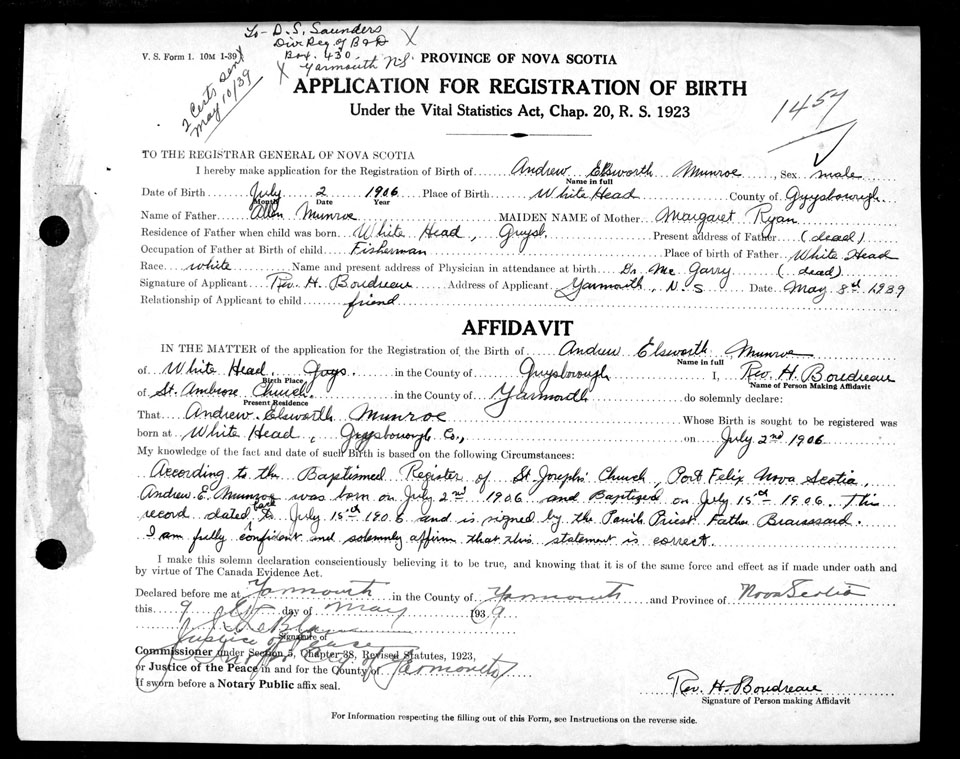 To - D. S. Saunders
Div Reg. of B & D
Box. 430.
Yarmouth N.S.
V. S. Form 1. 10M 1-39
2 Certs sent
May 10/39
X
X
X
PROVINCE OF NOVA SCOTIA
APPLICATION FOR REGISTRATION OF BIRTH
Under the Vital Statistics Act, Chap. 20, R. S. 1923
1457
TO THE REGISTRAR GENERAL OF NOVA SCOTIA
I hereby make application for the Registration of Birth of Andrew Elsworth Munroe, Sex male
Name in full
Date of Birth July 2 1906 Place of Birth White Head County of Guysborough.
Month Date Year
Name of Father Allen Munroe MAIDEN NAME of Mother Margaret Ryan
Residence of Father when child was born White Head, Guysb. Present address of Father (dead)
Occupation of Father at Birth of child Fisherman Place of birth of Father White Head
Race white Name and present address of Physician in attendance at birth Dr. Mc Garry (dead)
Signature of Applicant Rev. H. Boudreau Address of Applicant Yarmouth, N. S Date May 8th 1939
Relationship of Applicant to child friend
AFFIDAVIT
IN THE MATTER of the application for the Registration of the Birth of Andrew Elsworth Munroe
Name in full
of White Head, Guys. in the County of Guysborough I, Rev. H. Boudreau
Birth Place Name of Person Making Affidavit
of St. Ambrose Church. in the County of Yarmouth do solemnly declare:
Present Residence
That Andrew Elsworth Munroe Whose Birth is sought to be registered was
born at White Head, Guysborough Co., on July 2nd 1906
My knowledge of the fact and date of such Birth is based on the following Circumstances:
According to the Baptismal Register of St Joseph's Church, Port Felix Nova Scotia,
Andrew E. Munroe was born on July 2nd 1906 and Baptized on July 15th 1906. This
record dated back to July 15th 1906 and is signed by the Parish Priest Father Braussard.
I am fully confident and solemnly affirm that this statement is correct.
I make this solemn declaration conscientiously believing it to be true, and knowing that it is of the same force and effect as if made under oath and
by virtue of The Canada Evidence Act.
Declared before me at Yarmouth in the County of Yarmouth and Province of Nova Scotia
this 9 day of May 1939
Signature of
Justice of Peace
Commissioner under Section 5, Chapter 38, Revised Statutes, 1923,
or Justice of the Peace in and for the County of Yarmouth
If sworn before a Notary Public affix seal.
Rev. H. Boudreau
Signature of Person making Affidavit
For Information respecting the filling out of this Form, see Instructions on the reverse side.